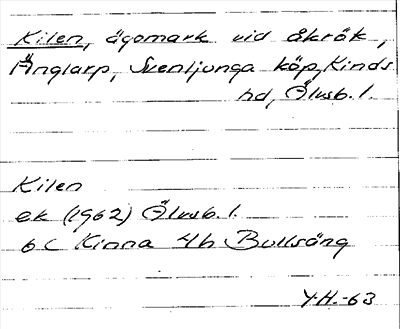 Kilen, ägomark vid åkrök,
Änglarp, Svenljunga köp, Kinds
hd, Älvsb. l.
Kilen
ek (1962) Älvsb. l.
6 C Kinna 4h Bullsäng
Y.H.-63